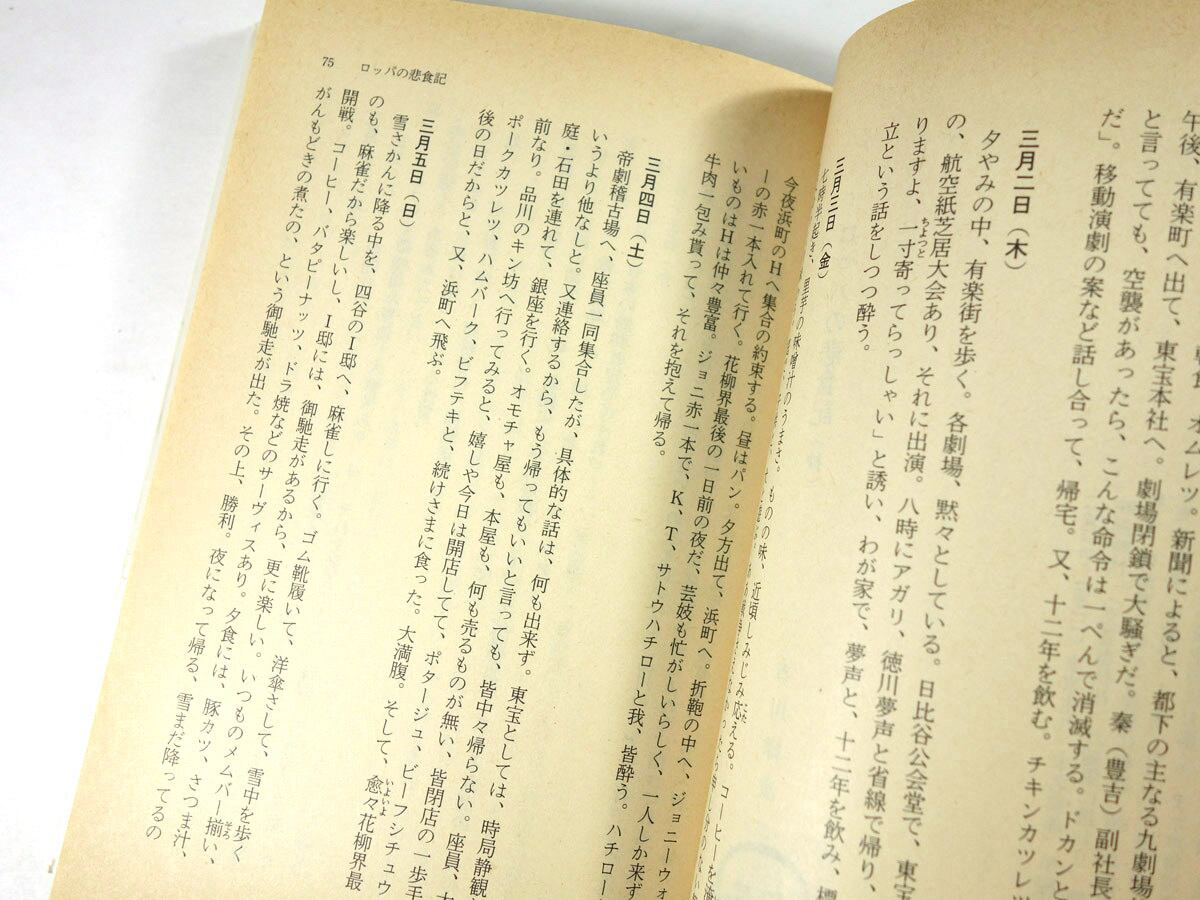 午後、有楽町へ出て、東宝本社へ。劇場閉鎖で大騒ぎだ。秦（豊吉）副社長
と言ってても、空襲があったら、こんな命令は一ぺんで消滅する。ドカンと
だ」。移動演劇の案など話し合って、帰宅。又、十二年を飲む。チキンカツレ
三月二日（木）
夕やみの中、有楽街を歩く。各劇場、黙々としている。日比谷公会堂で、東宝
の、航空紙芝居大会あり、それに出演。八時にアガリ、徳川夢声と省線で帰り、
りますよ、一寸寄ってらっしゃい」と誘い、わが家で、夢声と、十二年を飲み、
ちょっと
立という話をしつつ酔う。
三月三日（金）
七時半起き、里芋の味噌汁のうまさ。ものの味、近頃しみじみ応える。コーヒーを
今夜浜町のＨへ集合の約束する。昼はパン。夕方出て、浜町へ。折鞄の中へ、ジョニーウォ
ーの赤一本入れて行く。花柳界最後の一日前の夜だ、芸妓も忙がしいらしく、一人しか来ず
いものはＨは仲々豊富。ジョニ赤一本で、Ｋ、Ｔ、サトウハチローと我、皆酔う。ハチロー
牛肉一包み貰って、それを抱えて帰る。
三月四日（土）
帝劇稽古場へ、座員一同集合したが、具体的な話は、何も出来ず。東宝としては、時局静観
いうより他なしと。又連絡するから、もう帰ってもいいと言っても、皆中々帰らない。座員、
庭・石田を連れて、銀座を行く。オモチャ屋も、本屋も、何も売るものが無い、皆閉店の一歩手
前なり。品川のキン坊へ行ってみると、嬉しや今日は開店してて、ポタージュ、ビーフシチュウ
ポークカツレツ、ハムバーク、ビフテキと、続けさまに食った。大満腹。そして、愈々花柳界最
いよいよ
後の日だからと、又、浜町へ飛ぶ。
三月五日（日）
雪さかんに降る中を、四谷のＩ邸へ、麻雀しに行く。ゴム靴履いて、洋傘さして、雪中を歩く
のも、麻雀だから楽しいし、Ｉ邸には、御馳走があるから、更に楽しい。いつものメムバー揃い、
そろ
開戦。コーヒー、バタピーナッツ、ドラ焼などのサーヴィスあり。夕食には、豚カツ、さつま汁、
がんもどきの煮たの、という御馳走が出た。その上、勝利。夜になって帰る、雪まだ降ってるの
75 ロッパの悲食記